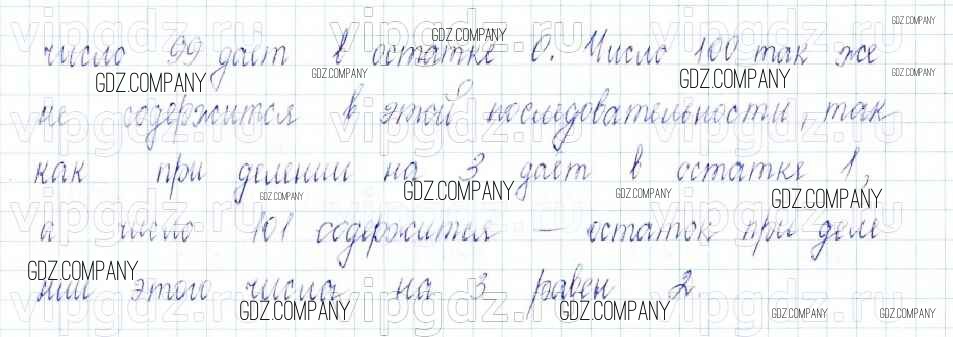 число 99 дает в остатке 0. Число 100 так же
не содержится в этой последовательности, так
как при делении на 3 дает в остатке 1,
а число 101 содержится — остаток при деле
нии этого числа на 3 равен 2.
GDZ.COMPANY GDZ.COMPANY
GDZ.COMPANY GDZ.COMPANY GDZ.COMPANY GDZ.COMPANY
GDZ.COMPANY GDZ.COMPANY GDZ.COMPANY GDZ.COMPANY
GDZ.COMPANY
GDZ.COMPANY GDZ.COMPANY GDZ.COMPANY GDZ.COMPANY
vipgdz.ru vipgdz.ru vipgdz.ru vipgdz.ru